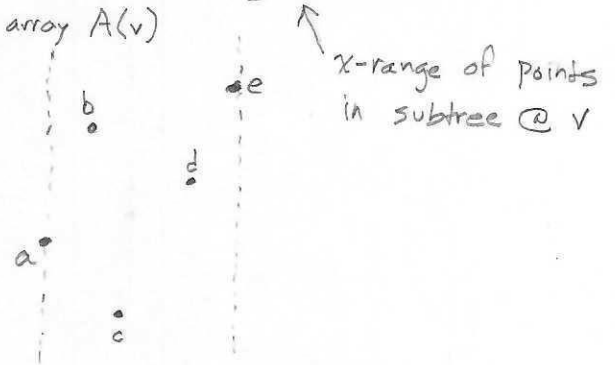 array A(v)
x-range of points
in subtree @ v
b
e
d
a
c